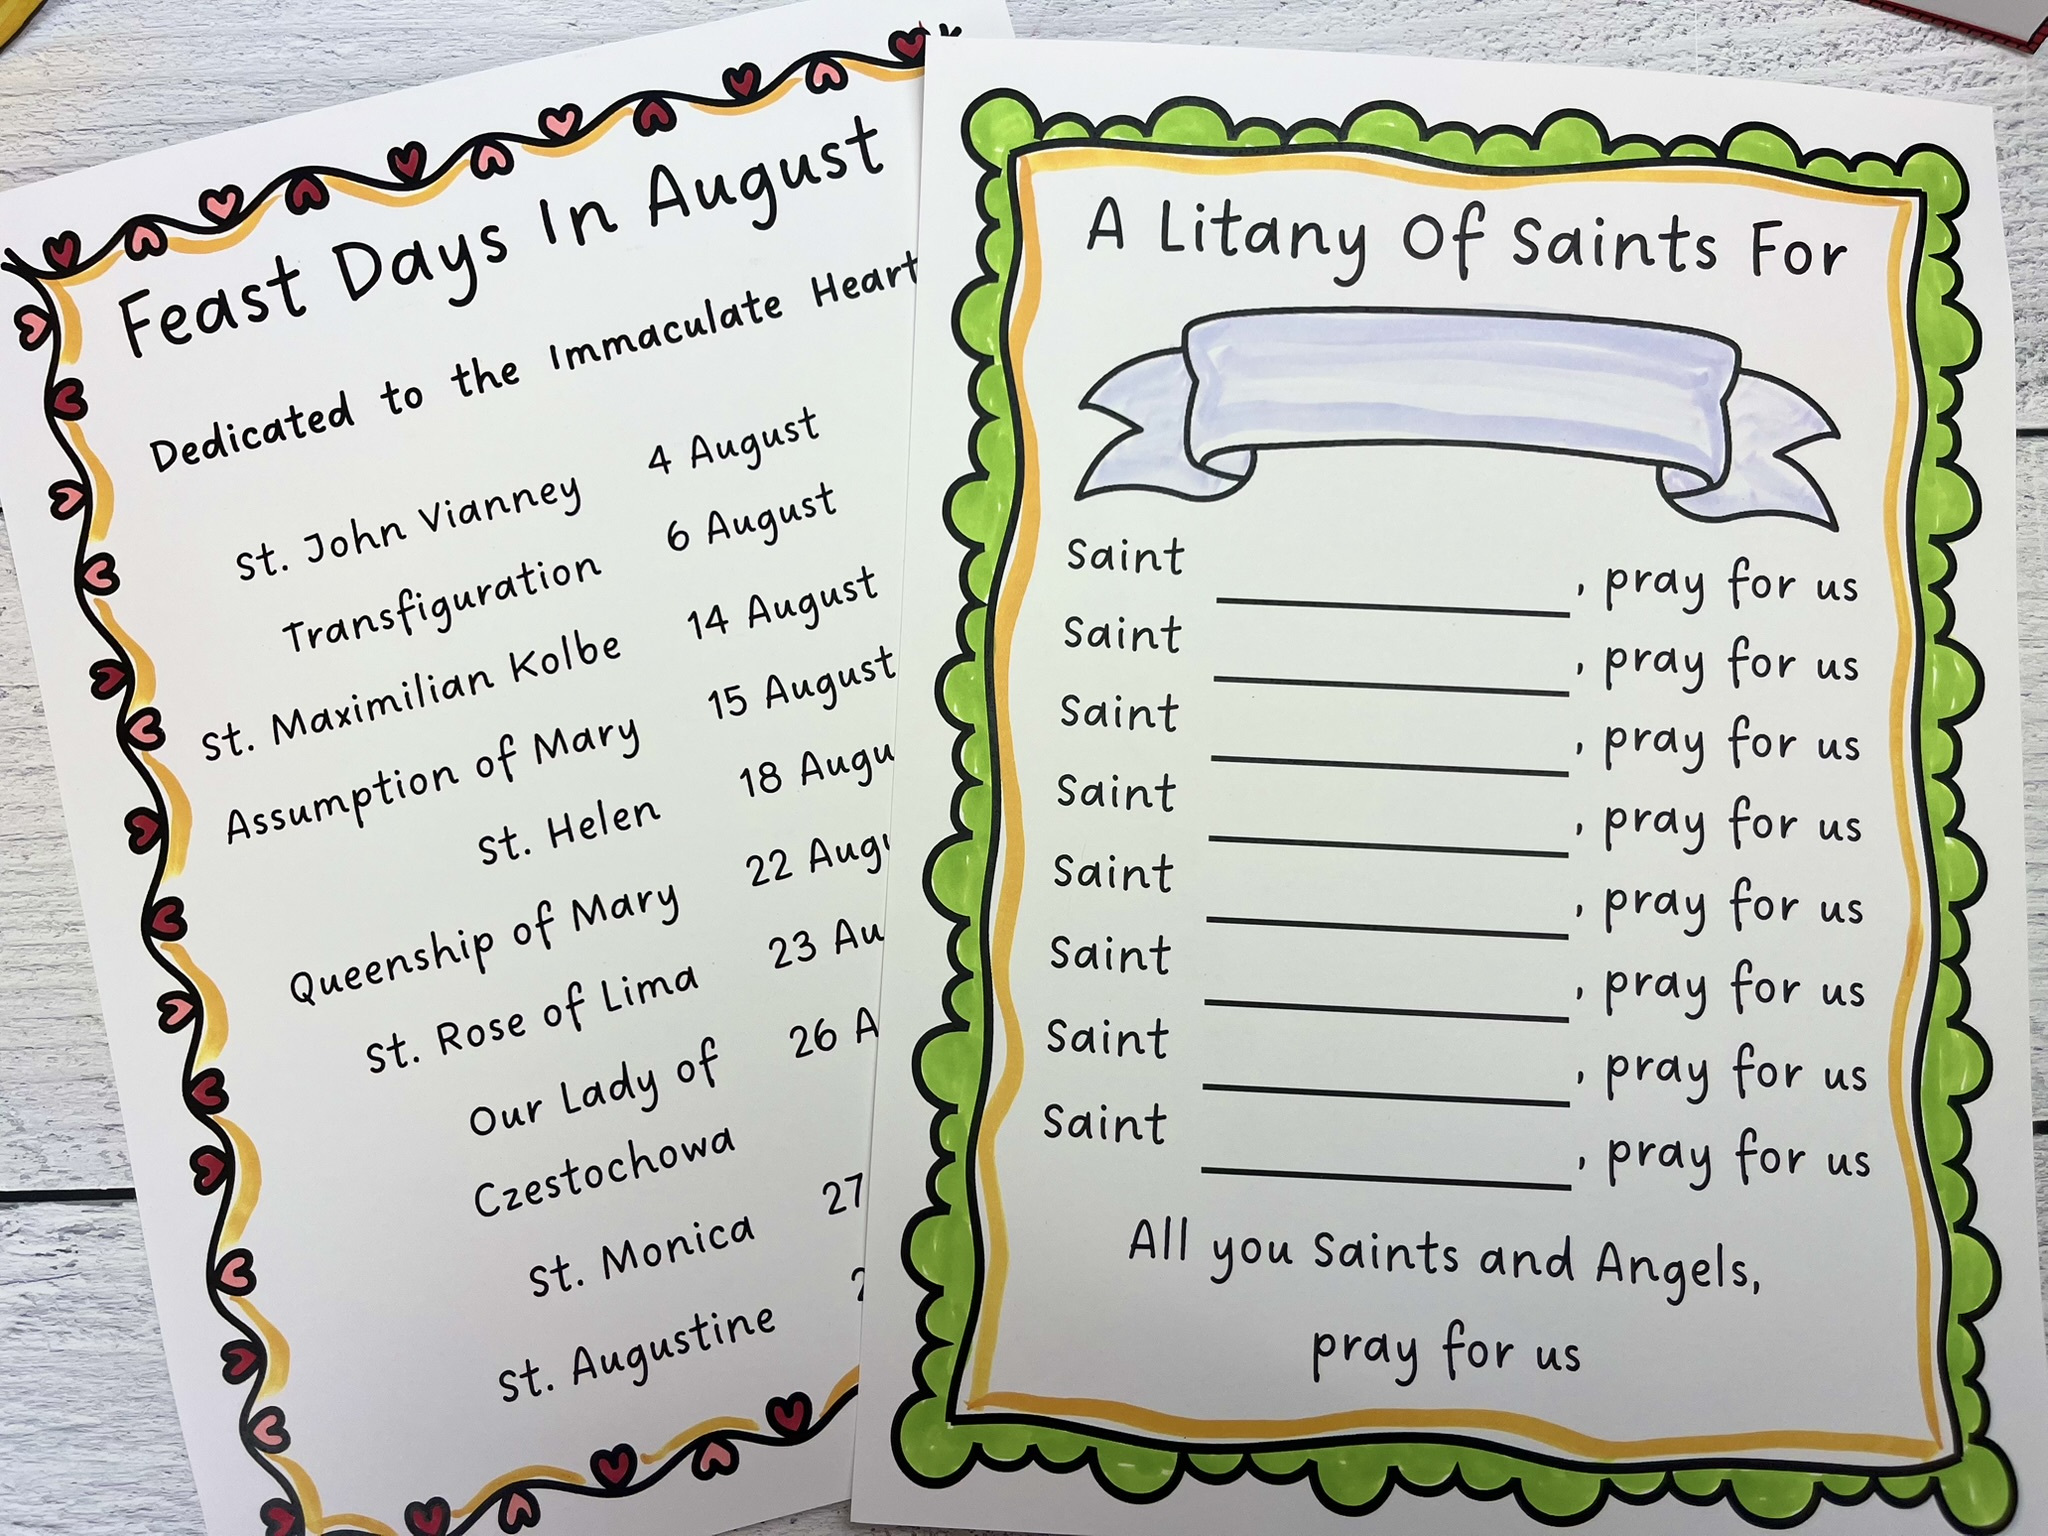 Feast Days In August
Dedicated to the Immaculate Heart
St. John Vianney 4 August
Transfiguration 6 August
St. Maximilian Kolbe 14 August
Assumption of Mary 15 August
St. Helen 18 Augu
Queenship of Mary 22 Augu
St. Rose of Lima 23 Au
Our Lady of 26 A
Czestochowa
St. Monica 27
St. Augustine 2
A Litany Of Saints For
Saint ____________, pray for us
Saint ____________, pray for us
Saint ____________, pray for us
Saint ____________, pray for us
Saint ____________, pray for us
Saint ____________, pray for us
Saint ____________, pray for us
Saint ____________, pray for us
All you Saints and Angels,
pray for us